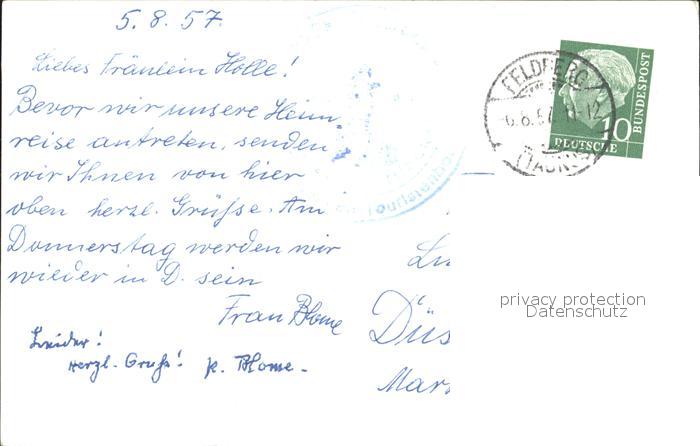 5.8.57.
Liebes Fräulein Holle!
Bevor wir unsere Heim-
reise antreten, senden
wir Ihnen von hier
oben herzl. Grüße. Am
Donnerstag werden wir
wieder in D. sein
Frau Blome
Leider!
Herzl. Gruß! K. Blome.
FELDBERG
6.8.57.11-12
(TAUNUS)
10
DEUTSCHE
BUNDESPOST
Düs
Mar
privacy protection
Datenschutz